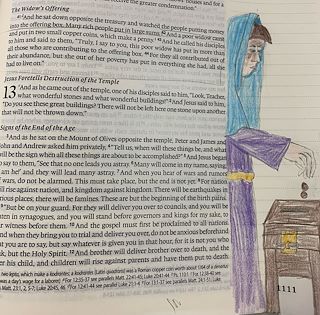 the greater condemnation."
The Widow's Offering
And he sat down opposite the treasury and watched the people putting money
into the offering box. Many rich people put in large sums. 42 And a poor widow came
and put in two small copper coins, which make a penny. 43 And he called his disciples
to him and said to them, "Truly, I say to you, this poor widow has put in more than
all those who are contributing to the offering box. 44 For they all contributed out of
their abundance, but she out of her poverty has put in everything she had, all she
had to live on."
Jesus Foretells Destruction of the Temple
13 And as he came out of the temple, one of his disciples said to him, "Look, Teacher,
what wonderful stones and what wonderful buildings!" 2 And Jesus said to him,
"Do you see these great buildings? There will not be left here one stone upon another
that will not be thrown down."
Signs of the End of the Age
3 And as he sat on the Mount of Olives opposite the temple, Peter and James and
John and Andrew asked him privately, 4 "Tell us, when will these things be, and what
will be the sign when all these things are about to be accomplished?" 5 And Jesus began
to say to them, "See that no one leads you astray. 6 Many will come in my name, saying,
am he!' and they will lead many astray. 7 And when you hear of wars and rumors
of wars, do not be alarmed. This must take place, but the end is not yet. 8 For nation
will rise against nation, and kingdom against kingdom. There will be earthquakes in
various places; there will be famines. These are but the beginning of the birth pains.
9 "But be on your guard. For they will deliver you over to councils, and you will be
beaten in synagogues, and you will stand before governors and kings for my sake, to
bear witness before them. 10 And the gospel must first be proclaimed to all nations.
And when they bring you to trial and deliver you over, do not be anxious beforehand
what you are to say, but say whatever is given you in that hour, for it is not you who
speak, but the Holy Spirit. 12 And brother will deliver brother over to death, and the
father his child, and children will rise against parents and have them put to death.
1111